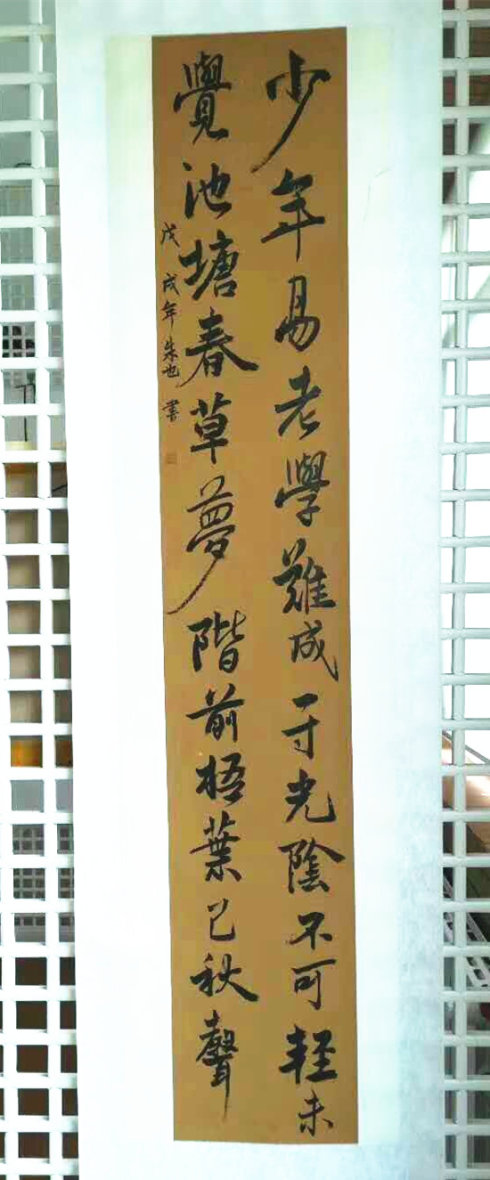 少年易老學難成一寸光陰不可輕未
覺池塘春草夢階前梧葉已秋聲
戊戌年朱也書